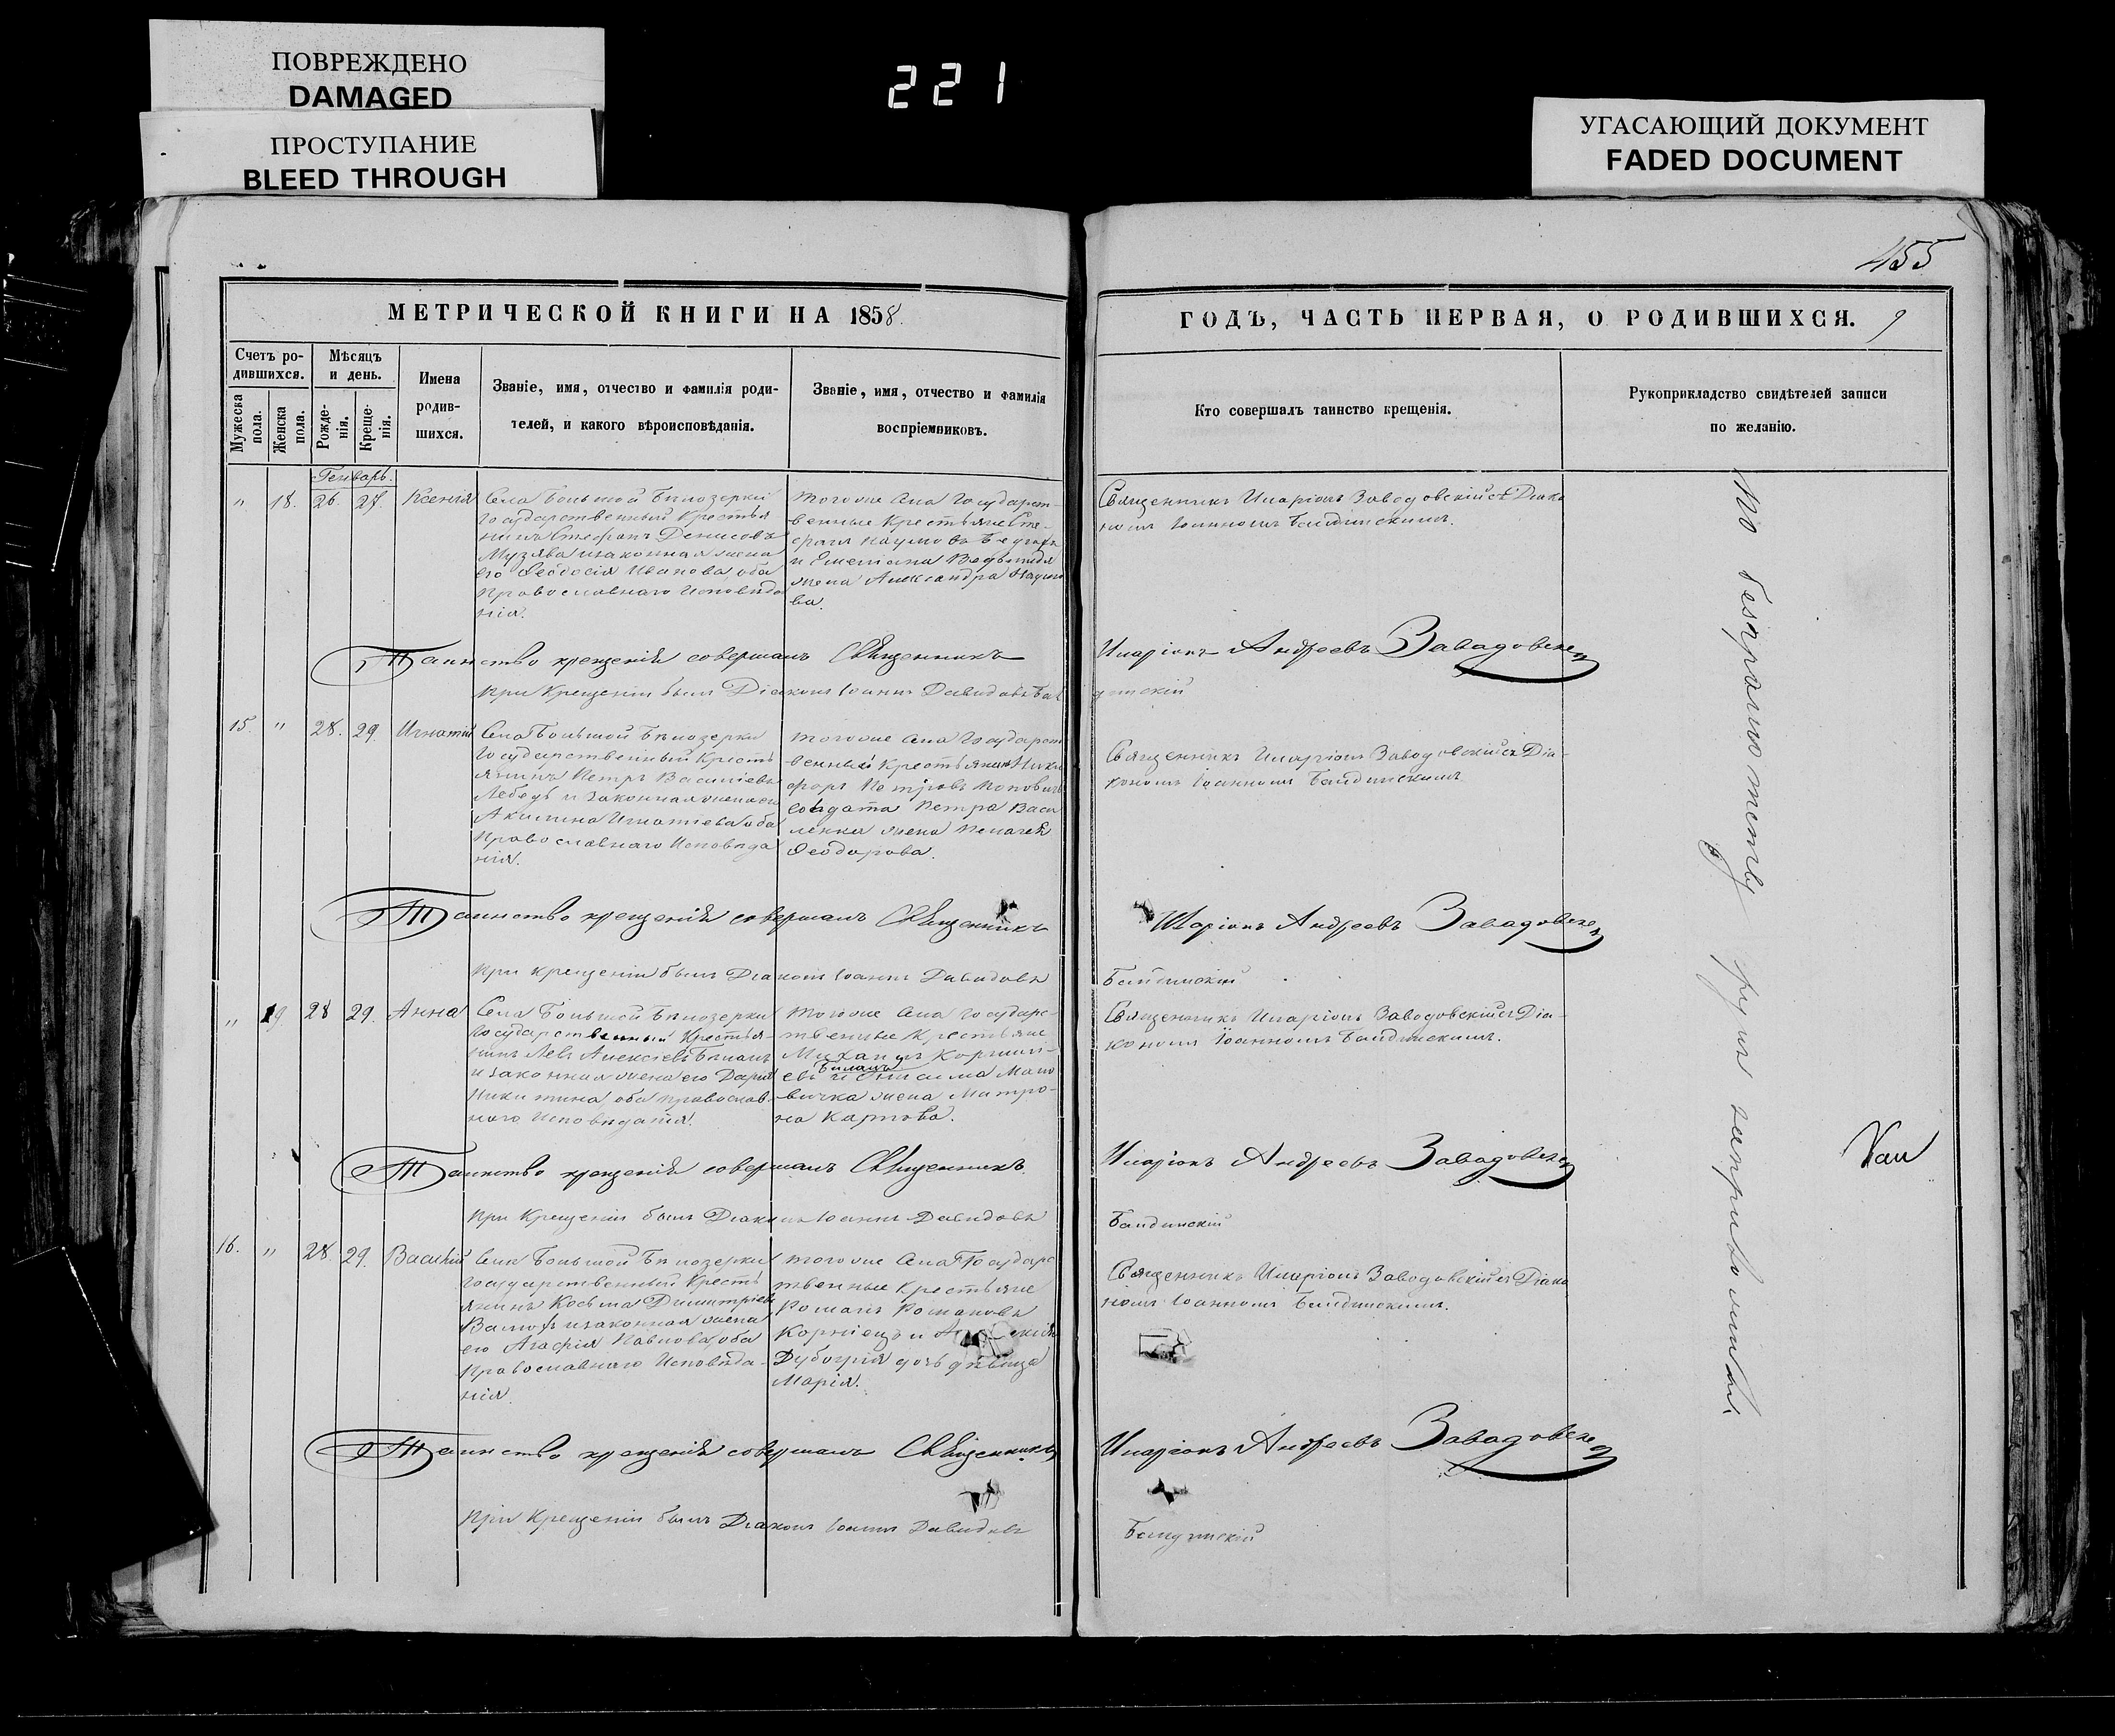 ПОВРЕЖДЕНО
DAMAGED
ПРОСТУПАНИЕ
BLEED THROUGH
221
УГАСАЮЩИЙ ДОКУМЕНТ
FADED DOCUMENT
455
МЕТРИЧЕСКОЙ КНИГИ НА 1858.
ГОДЪ, ЧАСТЬ ПЕРВАЯ, О РОДИВШИХСЯ. 9
Счетъ ро-
дившихся.
Мѣсяцъ
и день.
Мужеска
пола.
Женска
пола.
Рожде-
нія.
Креще-
нія.
Имена
родив-
шихся.
Званіе, имя, отчество и фамилія роди-
телей, и какого вѣроисповѣданія.
Званіе, имя, отчество и фамилія
воспріемниковъ.
Кто совершалъ таинство крещенія.
Рукоприкладство свидѣтелей записи
по желанію.
Генварь.
" 18. 26. 27. Ксенія
Села Большой Бѣлозерки
Государственный Крестья
нинъ Стефанъ Денисовъ
Музява и законная жена
его Ѳеодосія Иванова, оба
Православнаго Исповѣда
нія.
Тогоже Села Государст-
венные Крестьяне Сте-
фанъ Наумовъ
и Емеліана
жена Александра Наумо
ва.
Священникъ Иларіонъ Заводовскій съ Діако
номъ Іоанномъ Бандинскимъ.
Таинство крещенія совершалъ Священникъ
Иларіонъ Андреевъ Завадовскій
При Крещеніи былъ Діаконъ Іоаннъ Давидовъ Бан
динскій
15. " 28. 29. Игнатій
Села Большой Бѣлозерки
Государственный Кресть
янинъ Петръ Василіевъ
Лебедь и законная жена его
Акилина Игнатіева, оба
Православнаго Исповѣда
нія.
Тогоже Села Государст
венный Крестьянинъ Ники
форъ Петровъ Поповичъ
солдата Петра Васи
ленка жена Пелагея
Ѳеодорова.
Священникъ Иларіонъ Заводовскій съ Діа-
кономъ Іоанномъ Бандинскимъ
Таинство крещенія совершалъ Священникъ
Иларіонъ Андреевъ Завадовскій
При Крещеніи былъ Діаконъ Іоаннъ Давидовъ
Бандинскій
" 19. 28 29. Анна
Села Большой Бѣлозерки
Государственный Крестья-
нинъ Левъ Алексіевъ Біланъ
и законная жена его Дарія
Никитина, оба Православ-
наго Исповѣданія.
Тогоже Села Государс-
твенные Крестьяне
Михаилъ Корнилі-
евъ Биланъ и Онисима Мало
вичка жена Митро-
на Карпова.
Священникъ Иларіонъ Заводовскій съ Діа-
кономъ Іоанномъ Бандинскимъ.
Таинство крещенія совершалъ Священникъ
Иларіонъ Андреевъ Завадовскій
При Крещеніи былъ Діаконъ Іоаннъ Давидовъ
Бандинскій
16. " 28. 29. Василій
Села Большой Бѣлозерки
Государственный Кресть
янинъ Косьма Димитріевъ
и законная жена
его Агафія Павлова, оба
Православнаго Исповѣда-
нія.
Тогоже Села Государс
твенные Крестьяне
Романъ Романовъ
Корніецъ и
дочь дѣвица
Марія.
Священникъ Иларіонъ Заводовскій съ Діако
номъ Іоанномъ Бандинскимъ.
Таинство крещенія совершалъ Священникъ
Иларіонъ Андреевъ Завадовскій
При Крещеніи былъ Діаконъ Іоаннъ Давидовъ
Бандинскій
По безграмотству